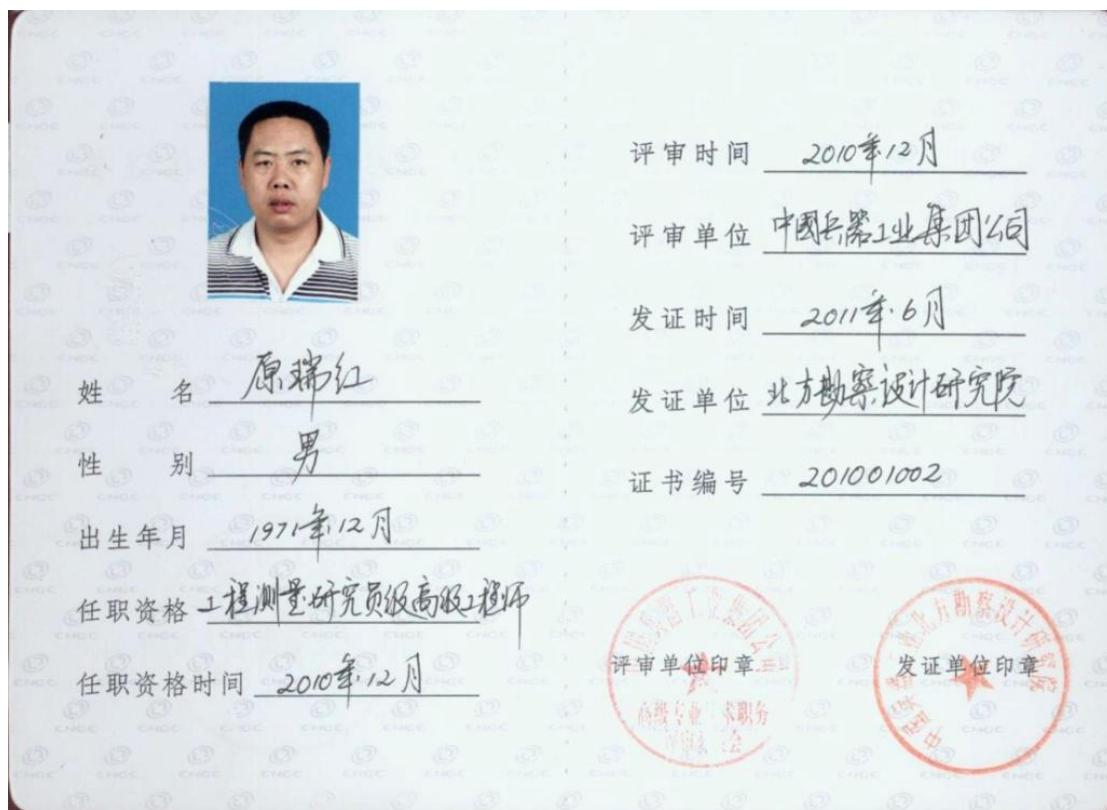 姓名 原瑞红
性别 男
出生年月 1971年12月
任职资格 工程测量研究员级高级工程师
任职资格时间 2010年12月
评审时间 2010年12月
评审单位 中國兵器工业集团公司
发证时间 2011年6月
发证单位 北方勘察设计研究院
证书编号 201001002
评审单位印章
高级专业技术职务
评审委员会
发证单位印章
北方勘察设计研究院
CNGC